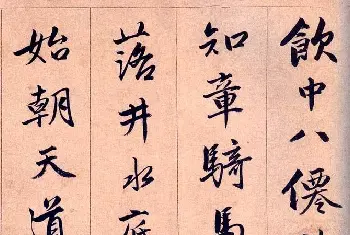 飲中八僊
知章騎馬
落井水底
始朝天道